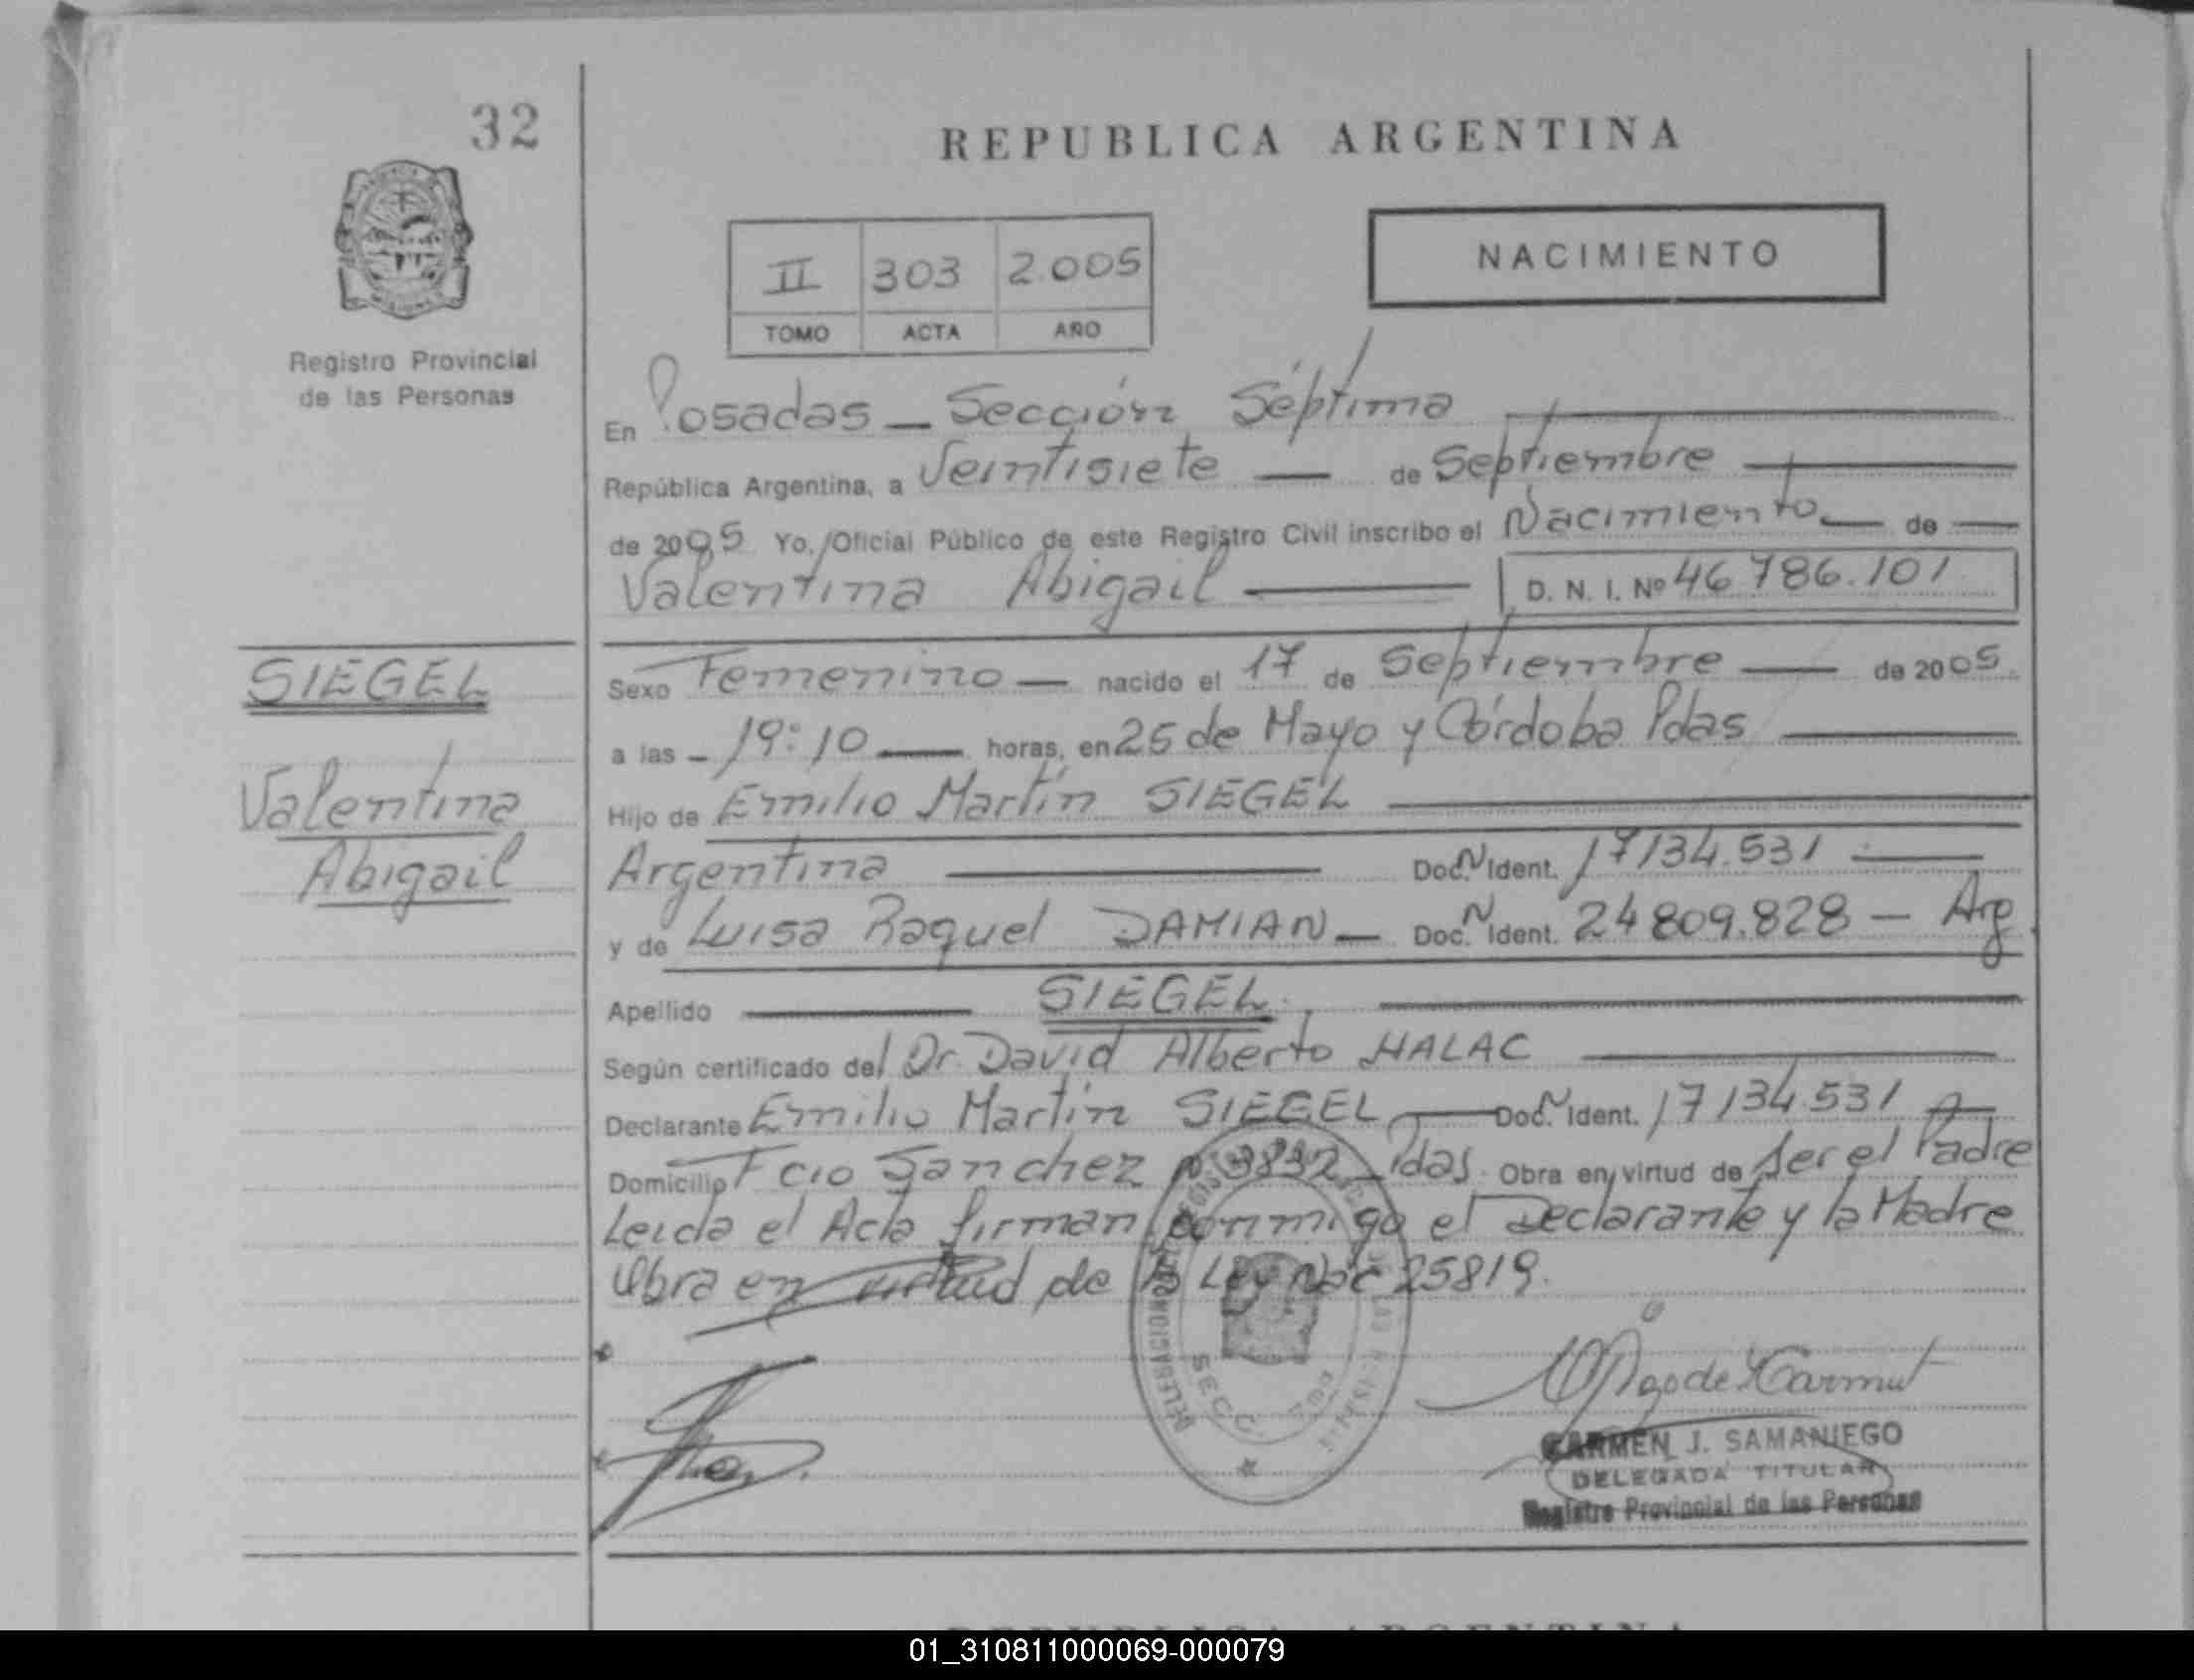 32
REPUBLICA ARGENTINA
NACIMIENTO
II 303 2.005
TOMO ACTA AÑO
Registro Provincial
de las Personas
En Posadas - Sección Séptima
República Argentina, a Veintisiete de Septiembre
de 2005 Yo, Oficial Público de este Registro Civil inscribo el Nacimiento de
Valentina Abigail D. N. I. Nº 46786.101
SIEGEL
Valentina
Abigail
Sexo Femenino nacido el 17 de Septiembre de 2005
a las 19:10 horas, en 25 de Mayo y Córdoba Pdas
Hijo de Emilio Martín SIEGEL
Argentina Doc. N Ident. 17134.531
y de Luisa Raquel DAMIAN Doc. N Ident. 24809.828 - Arg
Apellido SIEGEL
Según certificado del Dr. David Alberto HALAC
Declarante Emilio Martín SIEGEL Doc. N Ident. 17134.531 A
Domicilio Fcio Sanchez Nº 3832 Pdas. Obra en virtud de Ser el Padre
Leida el Acta firman conmigo el Declarante y la Madre
Obra en virtud de la Ley Nac 25819.
CARMEN J. SAMANIEGO
DELEGADA TITULAR
Registro Provincial de las Personas
REPUBLICA ARGENTINA
01_310811000069-000079